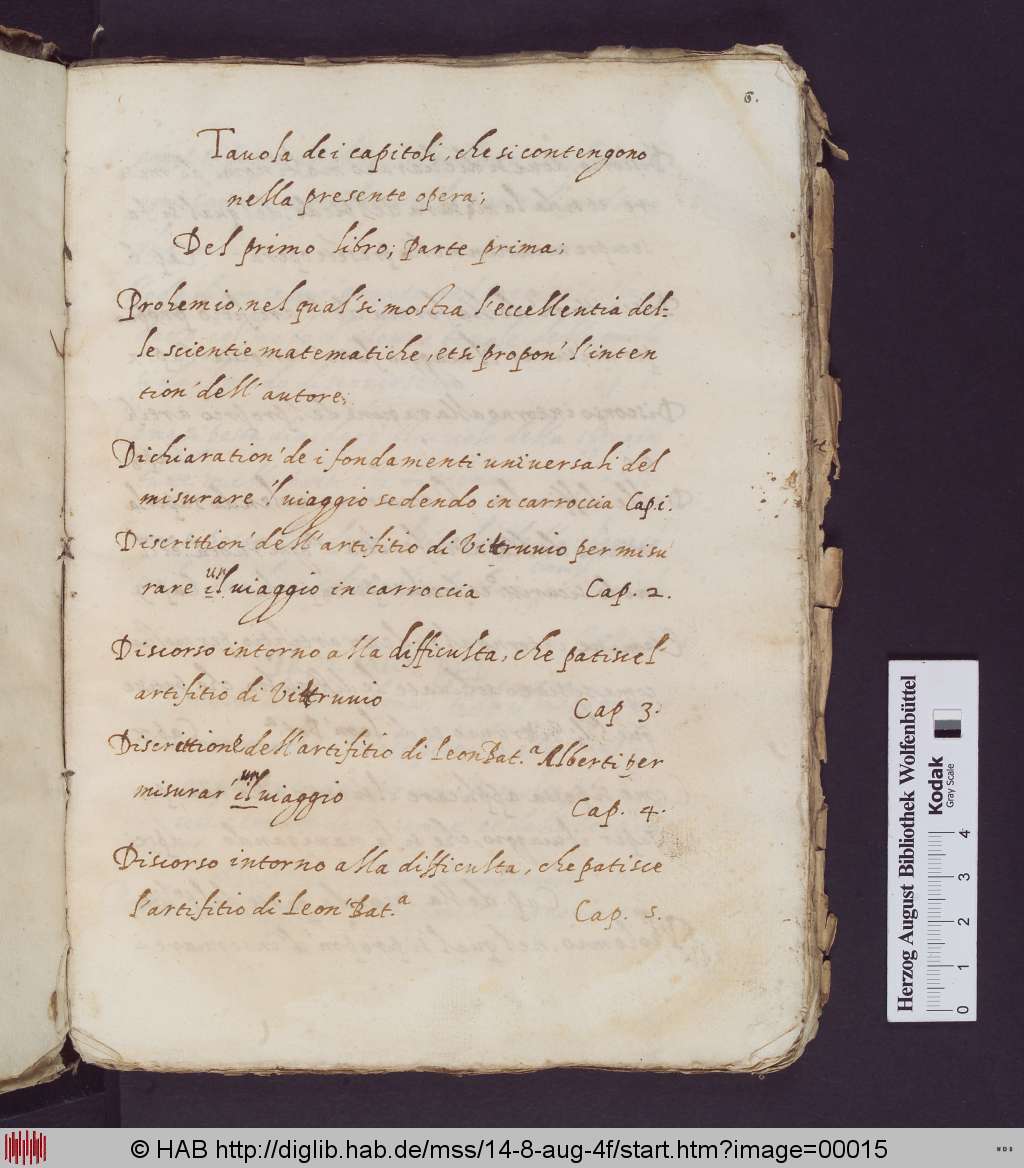 6.
Tavola de i capitoli, che si contengono
nella presente opera;
Del primo libro; parte prima;
Prohemio, nel qual' si mostra l'eccellentia del=
le scientie matematiche, et si propon' l'inten
tion' dell' autore;
Dichiaration' de i fondamenti universali del
misurare 'l viaggio sedendo in carroccia Cap. i.
Discrittion' dell' artifitio di Vittruvio per misu
rare un viaggio in carroccia Cap. 2.
Discorso intorno alla difficulta, che patisce l'
artifitio di Vittruvio Cap 3.
Discrittione dell' artifitio di Leon Bat.a Alberti per
misurar un viaggio Cap. 4.
Discorso intorno alla difficulta, che patisce
l'artifitio di Leon' Bat.a Cap. 5.
Herzog August Bibliothek Wolfenbüttel
Kodak
Gray Scale
0 1 2 3 4
© HAB http://diglib.hab.de/mss/14-8-aug-4f/start.htm?image=00015